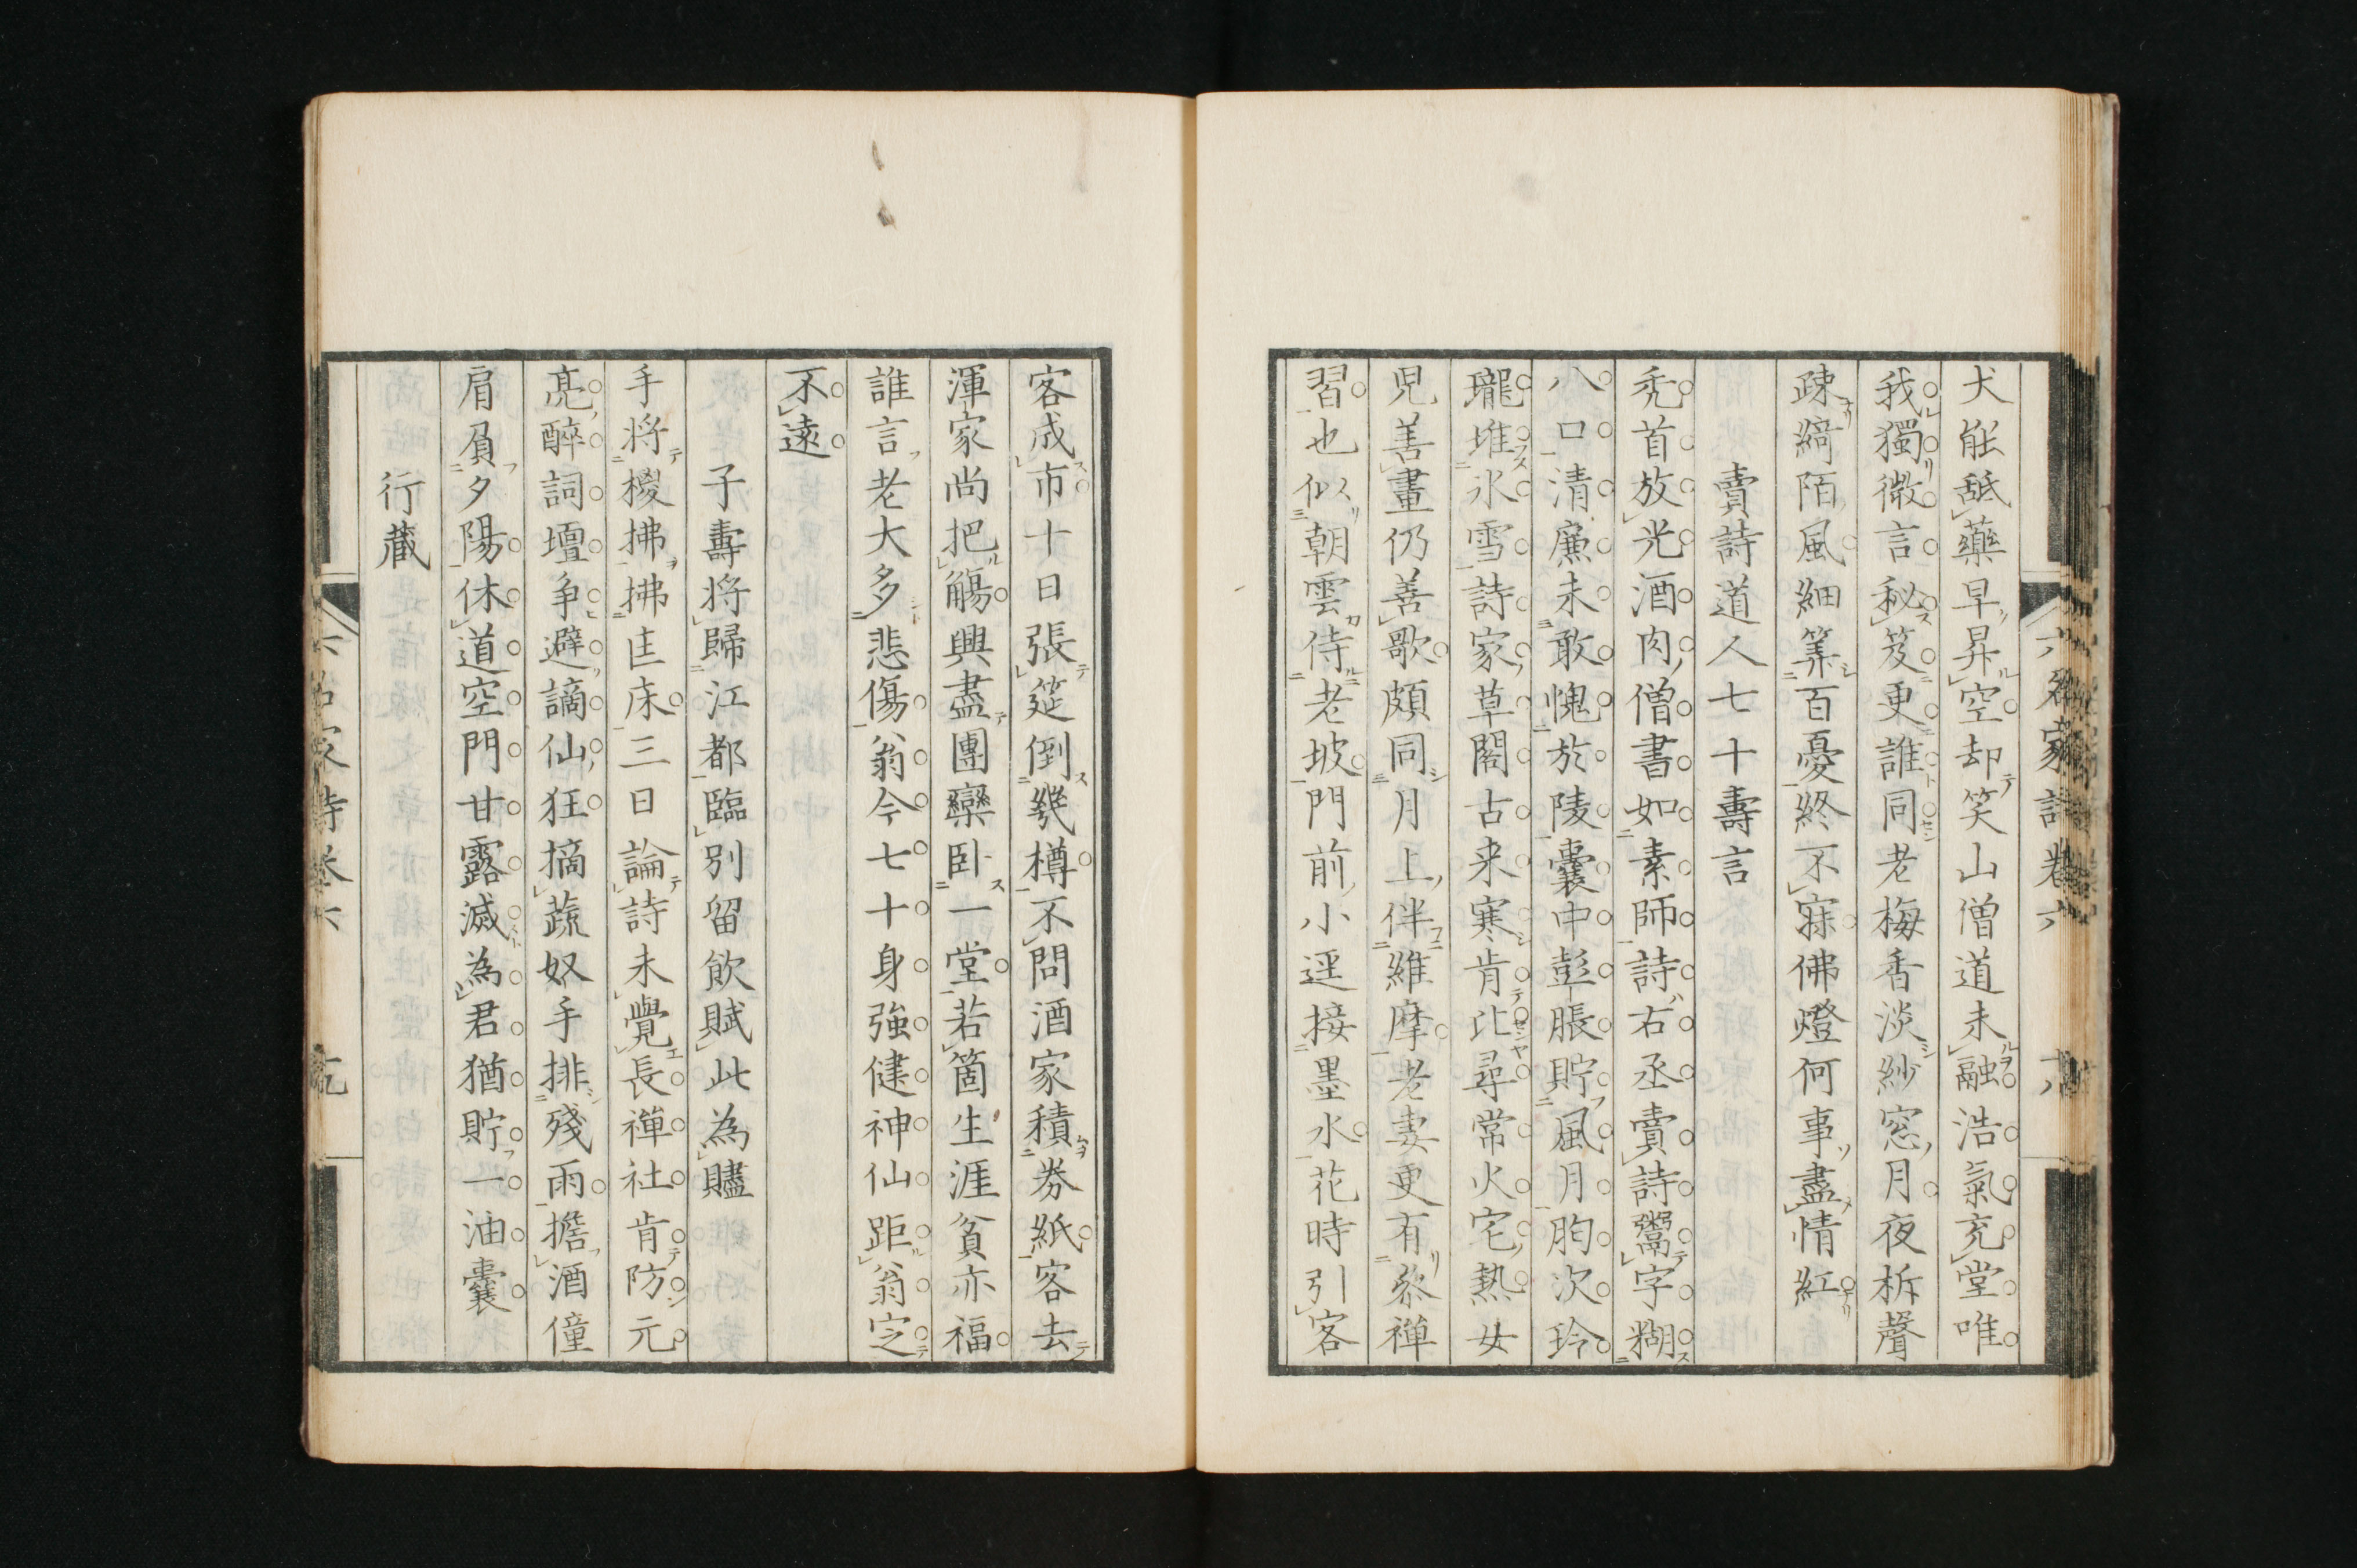 六名家詩卷六 十八
犬能舐藥早昇空却笑山僧道未融浩氣充堂唯
我獨微言秘笈更誰同老梅香淡紗窓月夜柝聲
疎綺陌風細筭百憂終不寐佛燈何事盡情紅
賣詩道人七十壽言
禿首放光酒肉僧書如素師詩右丞賣詩鬻字糊
八口清廉未敢愧於陵囊中彭脹貯風月胸次玲
瓏堆氷雪詩家草閣古来寒肯比尋常火宅熱女
児善畫仍善歌頗同月上伴維摩老妻更有參禅
習也似朝雲侍老坡門前小逕接墨水花時引客
客成市十日張筵倒幾樽不問酒家積券紙客去
渾家尚把觴興盡團欒卧一堂若箇生涯貧亦福
誰言老大多悲傷翁今七十身強健神仙距翁定
不遠
子壽將歸江都臨別留飲賦此為贐
手將椶拂拂匡床三日論詩未覺長禅社肯防元
亮醉詞壇争避謫仙狂摘蔬奴手排殘雨擔酒僮
肩負夕陽休道空門甘露滅為君猶貯一油囊
行藏
六名家詩卷六